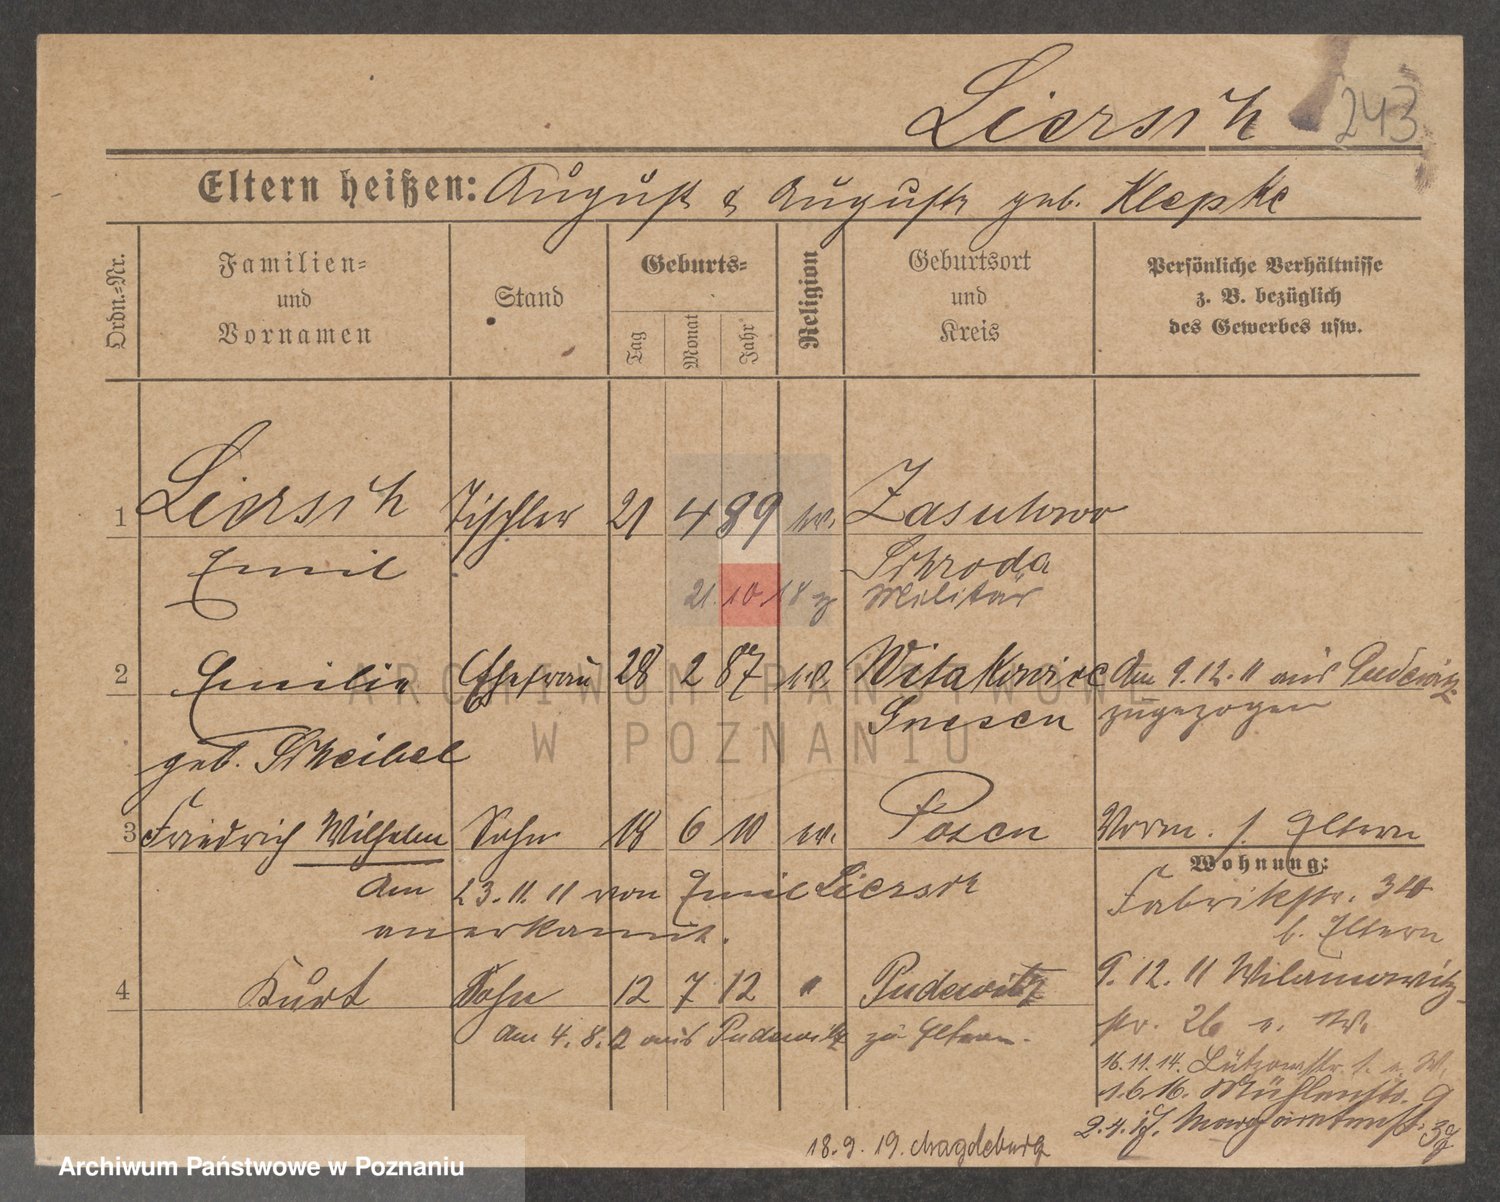 Liersch 243
Eltern heißen: August & Auguste geb. Klepke
Ordn.=Nr.
Familien=
und
Vornamen
Stand
Geburts=
Tag
Monat
Jahr
Religion
Geburtsort
und
Kreis
Persönliche Verhältnisse
z. B. bezüglich
des Gewerbes usw.
1 Liersch Tischler 21 4 89 ev. Zasutowo
Emil Schroda
21.10.18 Militär
2 Emilie Ehefrau 28 2 87 ev. Witakowice Am 9.12.11 aus Pudewitz
Gnesen zugezogen
geb. Scheibel
3 Friedrich Wilhelm Sohn 18 6 10 ev. Posen Vorm. s. Eltern
Wohnung:
am 23.11.11 von Emil Liersch
anerkannt.
Fabrikstr. 34
b. Eltern
4 Kurt Sohn 12 7 12 " Pudewitz
am 4.8.12 aus Pudewitz zu Eltern.
9.12.11 Wilamowitz-
str. 26 e. W.
16.11.14. Lützowstr. 1. e. W.
1.6.16. Mühlenstr. 9
2.4.17. Margaretenstr. 39
18.9.19. Magdeburg
ARCHIWUM PAŃSTWOWE
W POZNANIU
Archiwum Państwowe w Poznaniu